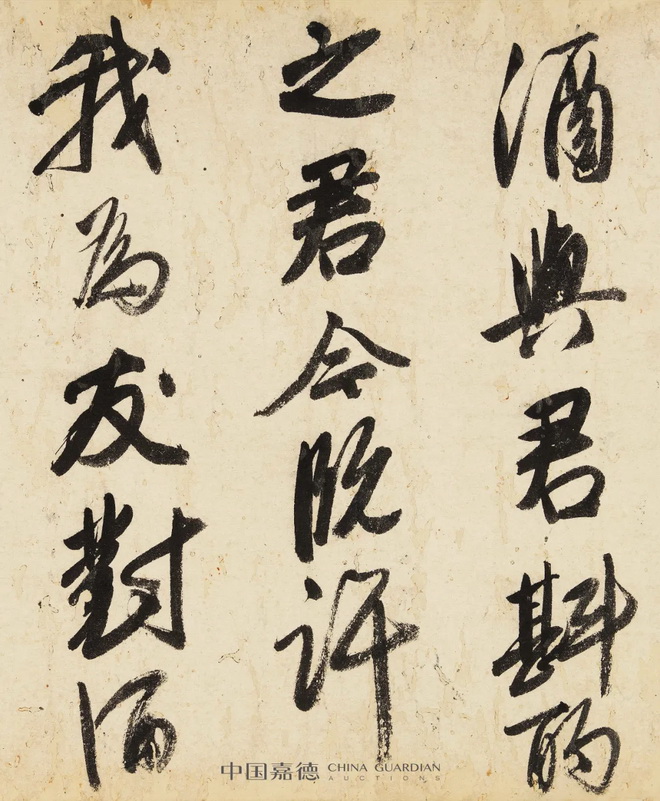 酒與君斟酌
之君今既許
我為友對酒
中国嘉德 CHINA GUARDIAN
AUCTIONS